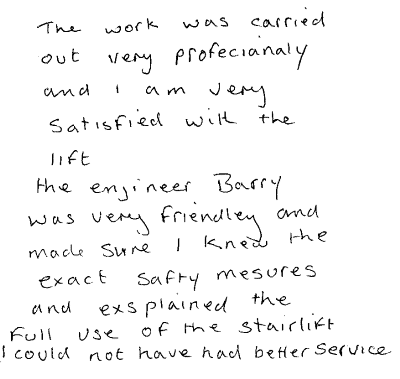 The work was carried
out very profecianaly
and I am very
satisfied with the
lift
the engineer Barry
was very friendley and
made sure I knew the
exact safty mesures
and exsplained the
full use of the stairlift
I could not have had better service